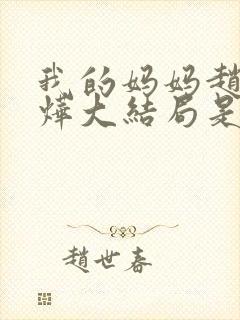 我的妈妈趙
燁大結局是
趙世春